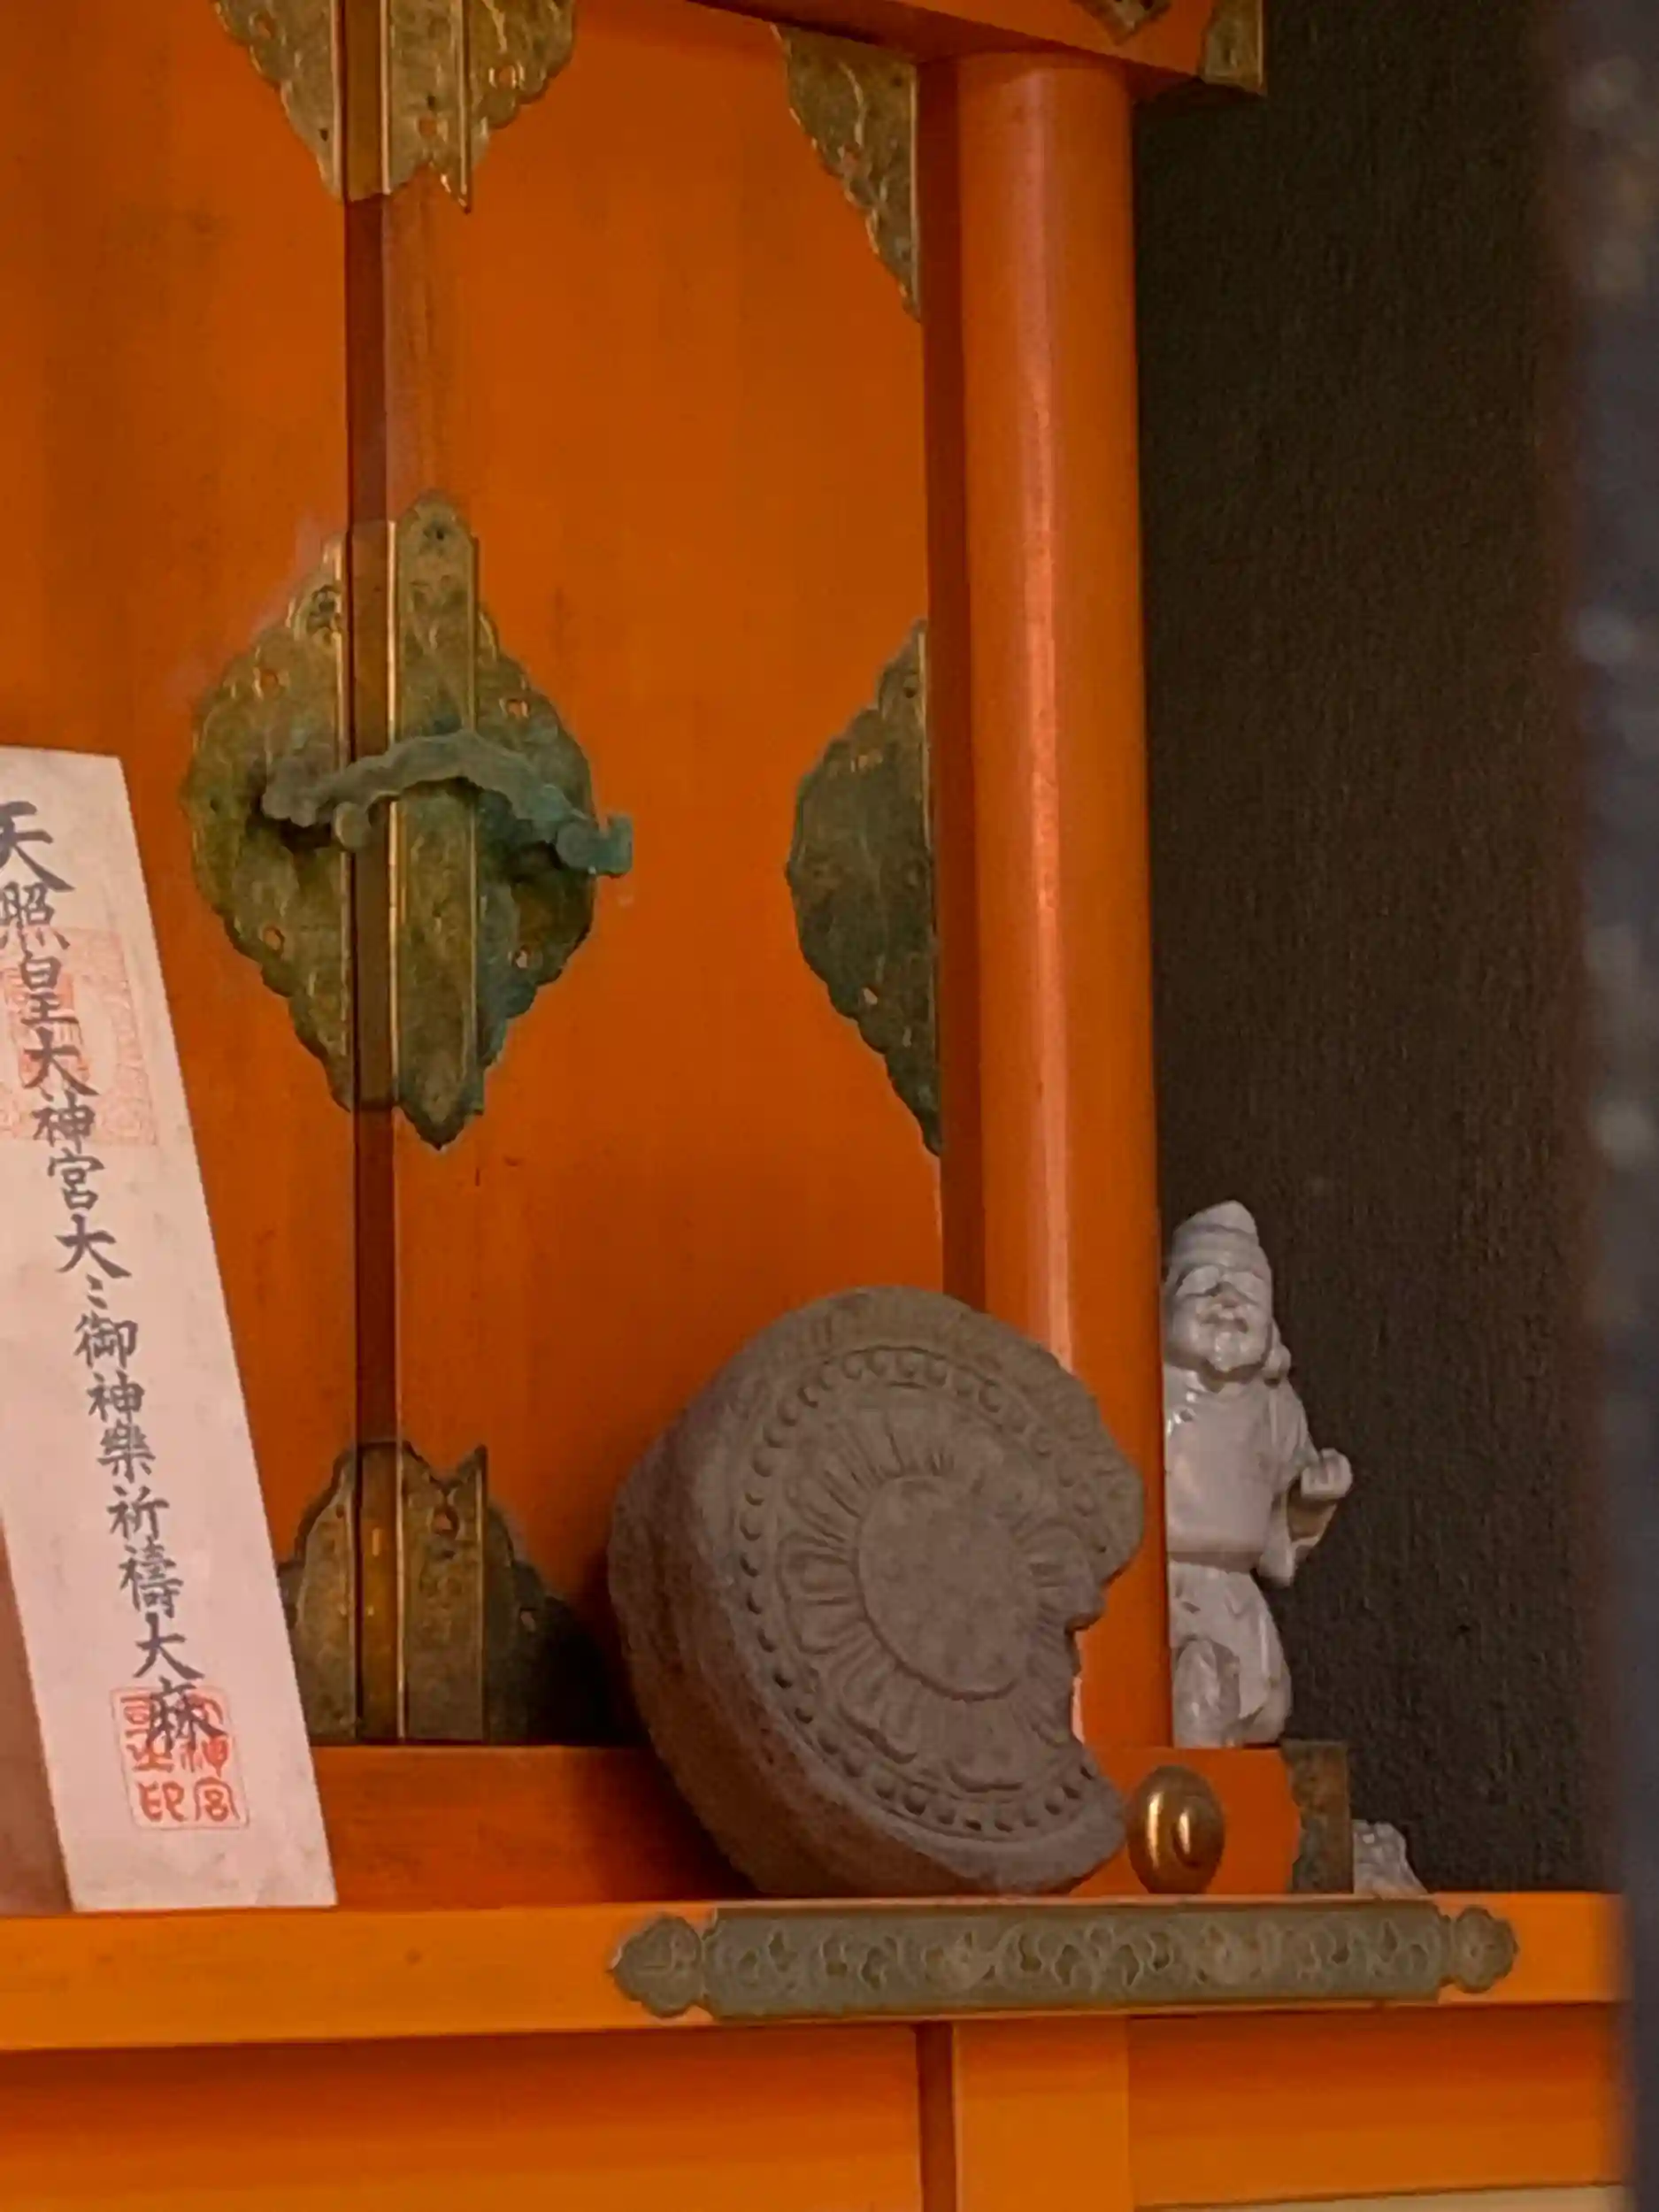 天照皇大神宮大〻御神樂祈禱大麻
神宮
司之印